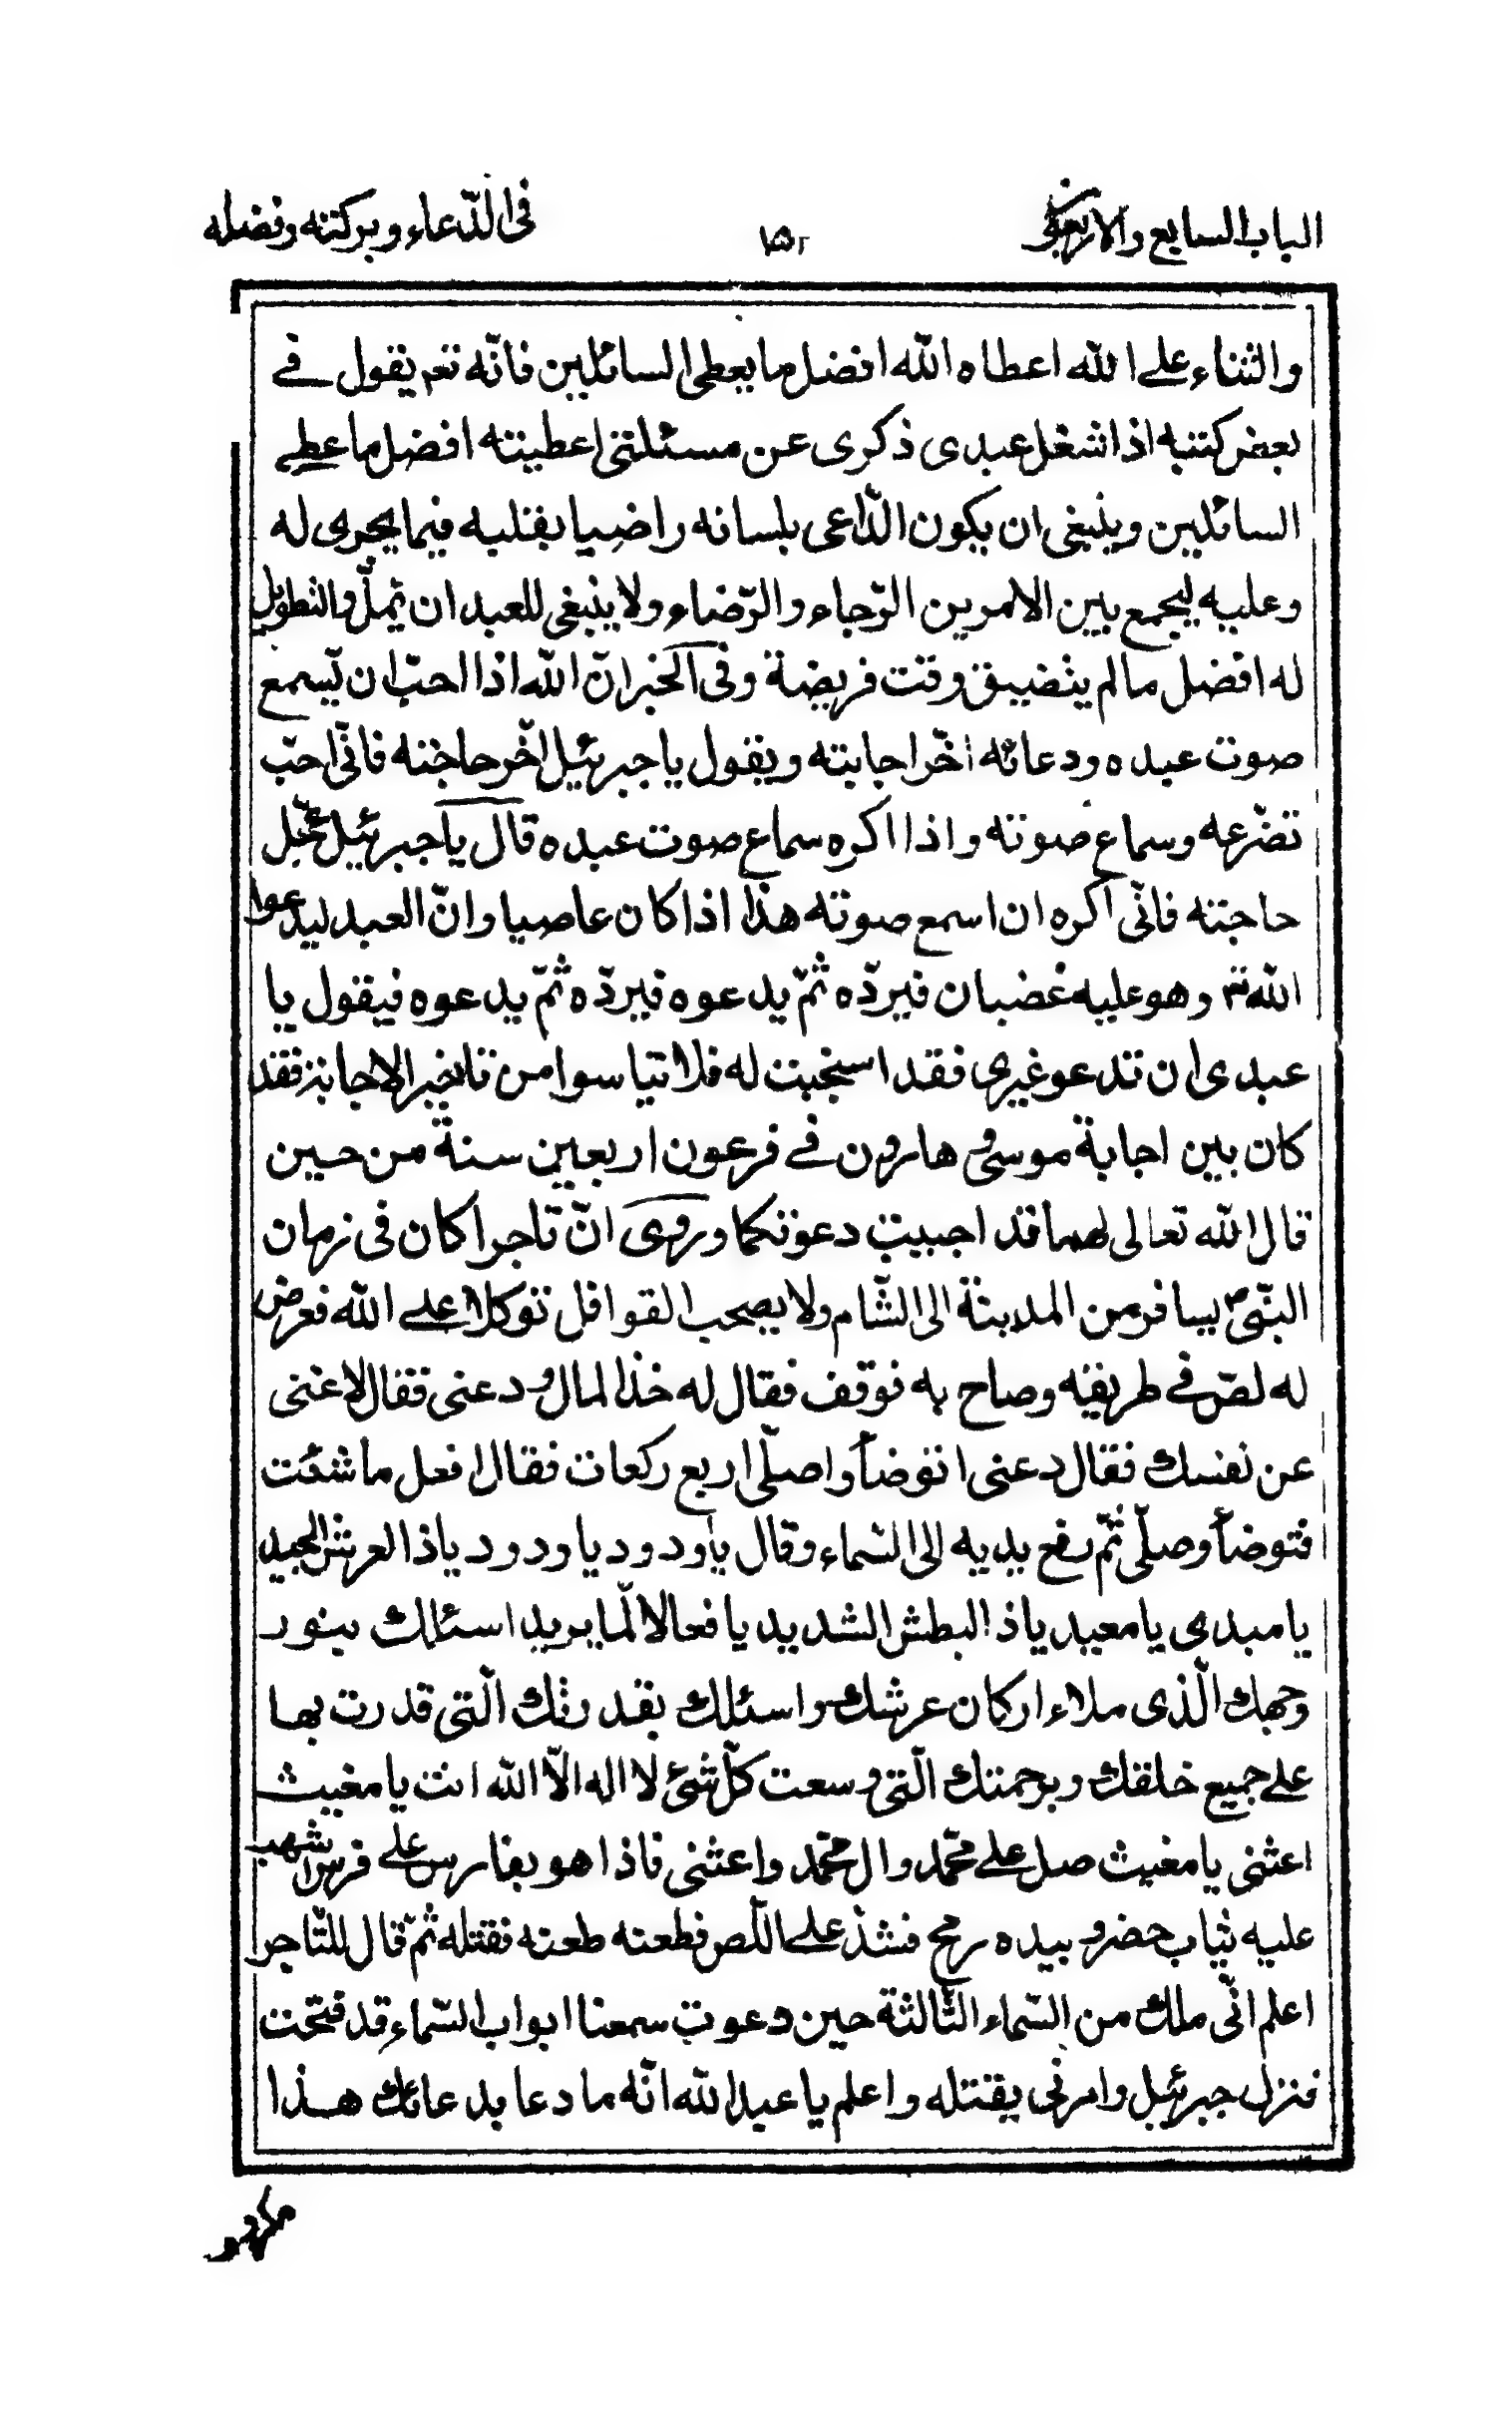 الباب السابع والاربعون ١٥٢ فى الدّعاء وبركته وفضله
والثناء على الله اعطاه الله افضل ما يعطى السائلين فانّه تعم يقول فى
بعض كتبه اذا شغل عبدى ذكرى عن مسئلتى اعطيته افضل ما عطى
السائلين وينبغى ان يكون الدّاعى بلسانه راضيا بقلبه فيما يجرى له
وعليه ليجمع بين الامرين الرّجاء والرّضاء ولا ينبغى للعبد ان يملّ والتطويل
له افضل ما لم يتضيق وقت فريضة وفى الخبر انّ الله اذا احبّ ان يسمع
صوت عبده ودعائه اخّر اجابته ويقول يا جبرئيل اخّر حاجته فانّى احبّ
تضرّعه وسماع صوته واذا اكره سماع صوت عبده قال يا جبرئيل عجّل
حاجته فانّى اكره ان اسمع صوته هذا اذا كان عاصيا وانّ العبد ليدعوا
الله تع وهو عليه غضبان فيردّه ثمّ يدعوه فيردّه ثمّ يدعوه فيقول يا
عبدى ان تدعو غيرى فقد استجبت له فلا تياسوا من تاخير الاجابة فقد
كان بين اجابة موسى و هارون فى فرعون اربعين سنة من حين
قال الله تعالى لهما قد اجيبت دعوتكما وروى انّ تاجرا كان فى زمان
النّبىّ ص يسافر من المدينة الى الشّام ولا يصحب القوافل توكلا على الله فعرض
له لصّ فى طريقه وصاح به فوقف فقال له خذ المال ودعنى فقال لاغنى
عن نفسك فقال دعنى اتوضأ واصلّى اربع ركعات فقال افعل ما شئت
فتوضأ وصلّى ثمّ رفع يديه الى السّماء وقال يا ودود يا ودود يا ذا العرش المجيد
يا مبدى يا معيد يا ذا البطش الشديد يا فعالا لّما يريد اسئلك بنور
وجهك الّذى ملاء اركان عرشك واسئلك بقدرتك الّتى قدرت بها
على جميع خلقك وبرحمتك الّتى وسعت كلّ شئ لا اله الّا الله انت يا مغيث
اغثنى يا مغيث صل على محّمد وال محّمد واغثنى فاذا هو بفارس على فرس اشهب
عليه ثياب خضر و بيده رمح فشدّ على اللّص فطعنه طعنه فقتله ثمّ قال للتّاجر
اعلم انّى ملك من السّماء الثّالثة حين دعوت سمعنا ابواب السّماء قد فتحت
فنزل جبرئيل وامرنى يقتله واعلم يا عبد الله انّه ما دعا بدعائك هذا